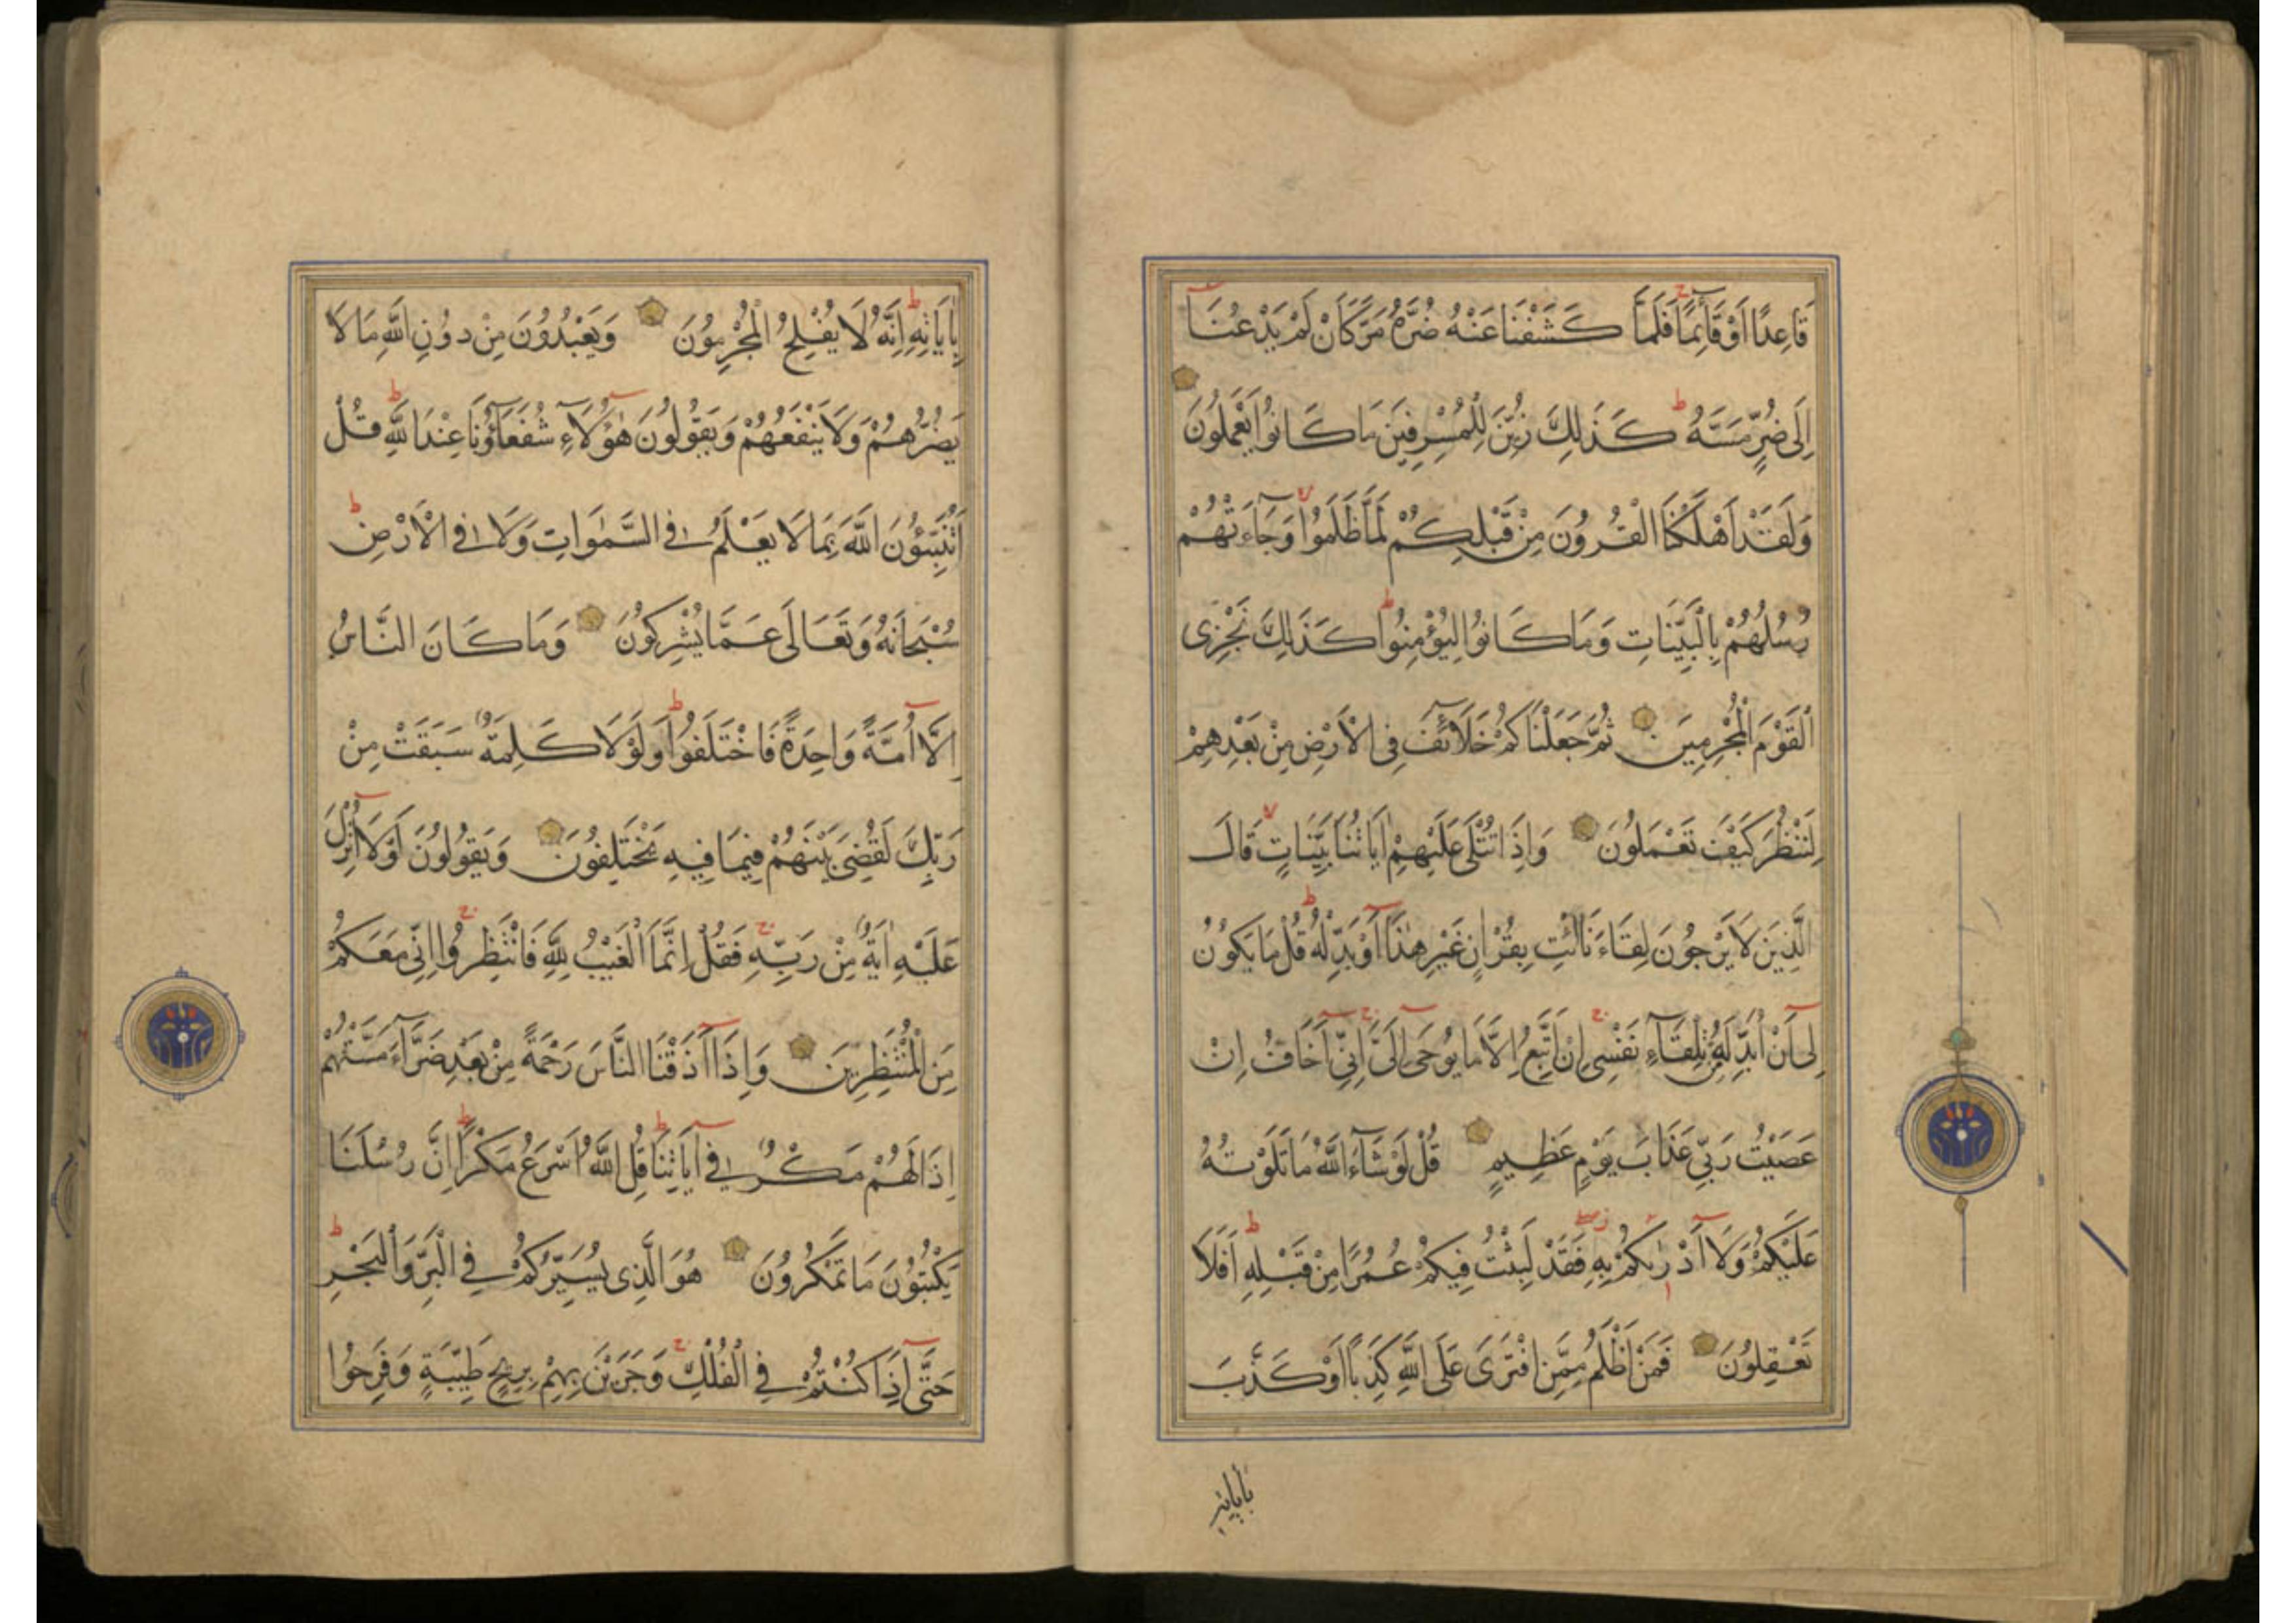 قَاعِدًا اَوْ قَائِمًا فَلَمَّا كَشَفْنَا عَنْهُ ضُرَّهُ مَرَّ كَاَنْ لَمْ يَدْعُنَا
اِلَى ضُرٍّ مَسَّهُ كَذَلِكَ زُيِّنَ لِلْمُسْرِفِينَ مَا كَانُوا يَعْمَلُونَ
وَلَقَدْ اَهْلَكْنَا الْقُرُونَ مِنْ قَبْلِكُمْ لَمَّا ظَلَمُوا وَجَاءَتْهُمْ
رُسُلُهُمْ بِالْبَيِّنَاتِ وَمَا كَانُوا لِيُؤْمِنُوا كَذَلِكَ نَجْزِى
الْقَوْمَ الْمُجْرِمِينَ ثُمَّ جَعَلْنَاكُمْ خَلَائِفَ فِى الْاَرْضِ مِنْ بَعْدِهِمْ
لِنَنْظُرَ كَيْفَ تَعْمَلُونَ وَاِذَا تُتْلَى عَلَيْهِمْ اٰيَاتُنَا بَيِّنَاتٍ قَالَ
الَّذِينَ لَا يَرْجُونَ لِقَاءَنَا ائْتِ بِقُرْاٰنٍ غَيْرِ هٰذَا اَوْ بَدِّلْهُ قُلْ مَا يَكُونُ
لِى اَنْ اُبَدِّلَهُ مِنْ تِلْقَاءِ نَفْسِى اِنْ اَتَّبِعُ اِلَّا مَا يُوحَى اِلَىَّ اِنِّى اَخَافُ اِنْ
عَصَيْتُ رَبِّى عَذَابَ يَوْمٍ عَظِيمٍ قُلْ لَوْ شَاءَ اللَّهُ مَا تَلَوْتُهُ
عَلَيْكُمْ وَلَا اَدْرٰىكُمْ بِهِ فَقَدْ لَبِثْتُ فِيكُمْ عُمُرًا مِنْ قَبْلِهِ اَفَلَا
تَعْقِلُونَ فَمَنْ اَظْلَمُ مِمَّنِ افْتَرَى عَلَى اللَّهِ كَذِبًا اَوْ كَذَّبَ
بأياته
بِاٰيَاتِهِ اِنَّهُ لَا يُفْلِحُ الْمُجْرِمُونَ وَيَعْبُدُونَ مِنْ دُونِ اللَّهِ مَا لَا
يَضُرُّهُمْ وَلَا يَنْفَعُهُمْ وَيَقُولُونَ هٰؤُلَاءِ شُفَعَاؤُنَا عِنْدَ اللَّهِ قُلْ
اَتُنَبِّئُونَ اللَّهَ بِمَا لَا يَعْلَمُ فِى السَّمٰوَاتِ وَلَا فِى الْاَرْضِ
سُبْحَانَهُ وَتَعَالَى عَمَّا يُشْرِكُونَ وَمَا كَانَ النَّاسُ
اِلَّا اُمَّةً وَاحِدَةً فَاخْتَلَفُوا وَلَوْلَا كَلِمَةٌ سَبَقَتْ مِنْ
رَبِّكَ لَقُضِىَ بَيْنَهُمْ فِيمَا فِيهِ يَخْتَلِفُونَ وَيَقُولُونَ لَوْلَا اُنْزِلَ
عَلَيْهِ اٰيَةٌ مِنْ رَبِّهِ فَقُلْ اِنَّمَا الْغَيْبُ لِلَّهِ فَانْتَظِرُوا اِنِّى مَعَكُمْ
مِنَ الْمُنْتَظِرِينَ وَاِذَا اَذَقْنَا النَّاسَ رَحْمَةً مِنْ بَعْدِ ضَرَّاءَ مَسَّتْهُمْ
اِذَا لَهُمْ مَكْرٌ فِى اٰيَاتِنَا قُلِ اللَّهُ اَسْرَعُ مَكْرًا اِنَّ رُسُلَنَا
يَكْتُبُونَ مَا تَمْكُرُونَ هُوَ الَّذِى يُسَيِّرُكُمْ فِى الْبَرِّ وَالْبَحْرِ
حَتَّى اِذَا كُنْتُمْ فِى الْفُلْكِ وَجَرَيْنَ بِهِمْ بِرِيحٍ طَيِّبَةٍ وَفَرِحُوا